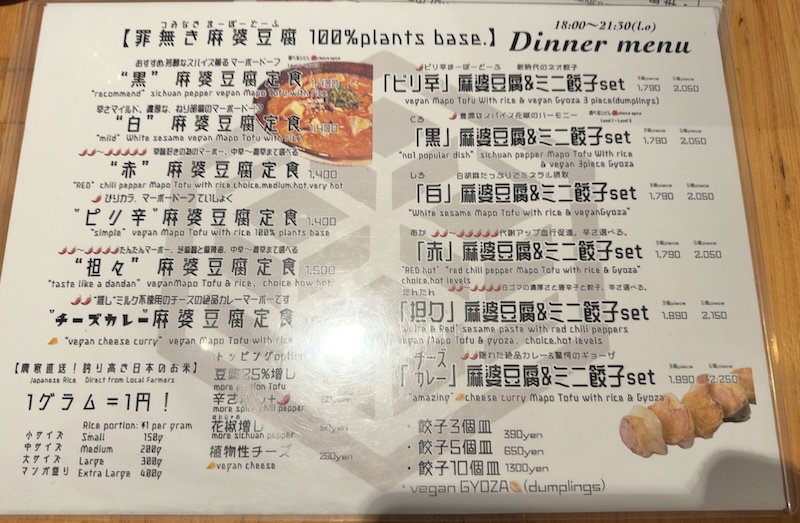 つみなきまーぼーどーふ
【罪無き麻婆豆腐 100%plants base.】
18:00〜21:30(l.o)
Dinner menu
おすすめ,芳醇なスパイス薫るマーボードーフ
"黒" 麻婆豆腐定食 1,480
"recommend" sichuan pepper vegan Mapo Tofu with rice
辛さマイルド、濃厚な、ねり胡麻のマーボードーフ
"白" 麻婆豆腐定食 1,400
"mild" White sesame vegan Mapo Tofu with rice
辛味好きの為のマーボー、中辛〜激辛まで選べる
"赤" 麻婆豆腐定食
"RED" chili pepper Mapo Tofu with rice choice,medium,hot,very hot
ぴりカラ、マーボードーフていしょく
"ピリ辛" 麻婆豆腐定食 1,400
"simple" vegan Mapo Tofu with rice 100% plants base
〜たんたんマーボー、胡麻醤と麻辣油、中辛〜激辛まで選べる
"担々" 麻婆豆腐定食 1,500
"taste like a dandan" veganMapo Tofu & rice, choice how hot.
"隠し"ミルク不使用のチーズの絶品カレーマーボーです
"チーズカレー"麻婆豆腐定食
"vegan cheese curry" vegan Mapo Tofu with rice
【農家直送！誇り高き日本のお米】
Japanese Rice Direct from Local Farmers
1グラム=1円！
Rice portion: ¥1 per gram
小サイズ Small 150g
中サイズ Medium 200g
大サイズ Large 300g
マンガ盛り Extra Large 400g
トッピングoption
豆腐25%増し
more Tofu
辛さ
more spicy chili pepper
はとじゃお
花椒増し
more sichuan pepper
植物性チーズ 250yen
vegan cheese
ピリ辛まーぼーどーふ 新時代のネオ餃子
「ピリ辛」麻婆豆腐&ミニ餃子set 3個piece 1,790 5個piece 2,050
vegan Mapo Tofu With rice & vegan Gyoza 3 piece(dumplings)
くろ 豊潤なスパイス花椒のハーモニー
「黒」麻婆豆腐&ミニ餃子set 1,790 2,050
"no1 popular dish" sichuan pepper Mapo Tofu With rice
& vegan 3piece Gyoza
しろ 白胡麻たっぷりでミネラル摂取
「白」麻婆豆腐&ミニ餃子set 1,790 2,050
"White sesame Mapo Tofu with rice & veganGyoza"
あか 〜代謝アップ血行促進、辛さ選べる。
「赤」麻婆豆腐&ミニ餃子set 1,790 2,050
"RED hot" "red chili pepper Mapo Tofu with rice & Gyoza"
choice,hot levels
たんたん 〜白ゴマの濃厚さと唐辛子と餃子、辛さ選べる。
「担々」麻婆豆腐&ミニ餃子set 1,890 2,150
"White & Red" sesame paste with red chili peppers
vegan Mapo Tofu & gyoza. choice,hot levels
隠れた絶品カレー&驚愕のギョーザ
「チーズカレー」麻婆豆腐&ミニ餃子set 1,990 2,250
"amazing" cheese curry Mapo Tofu with rice & Gyoza
・餃子3個皿 390yen
・餃子5個皿 650yen
・餃子10個皿 1300yen
* vegan GYOZA (dumplings)